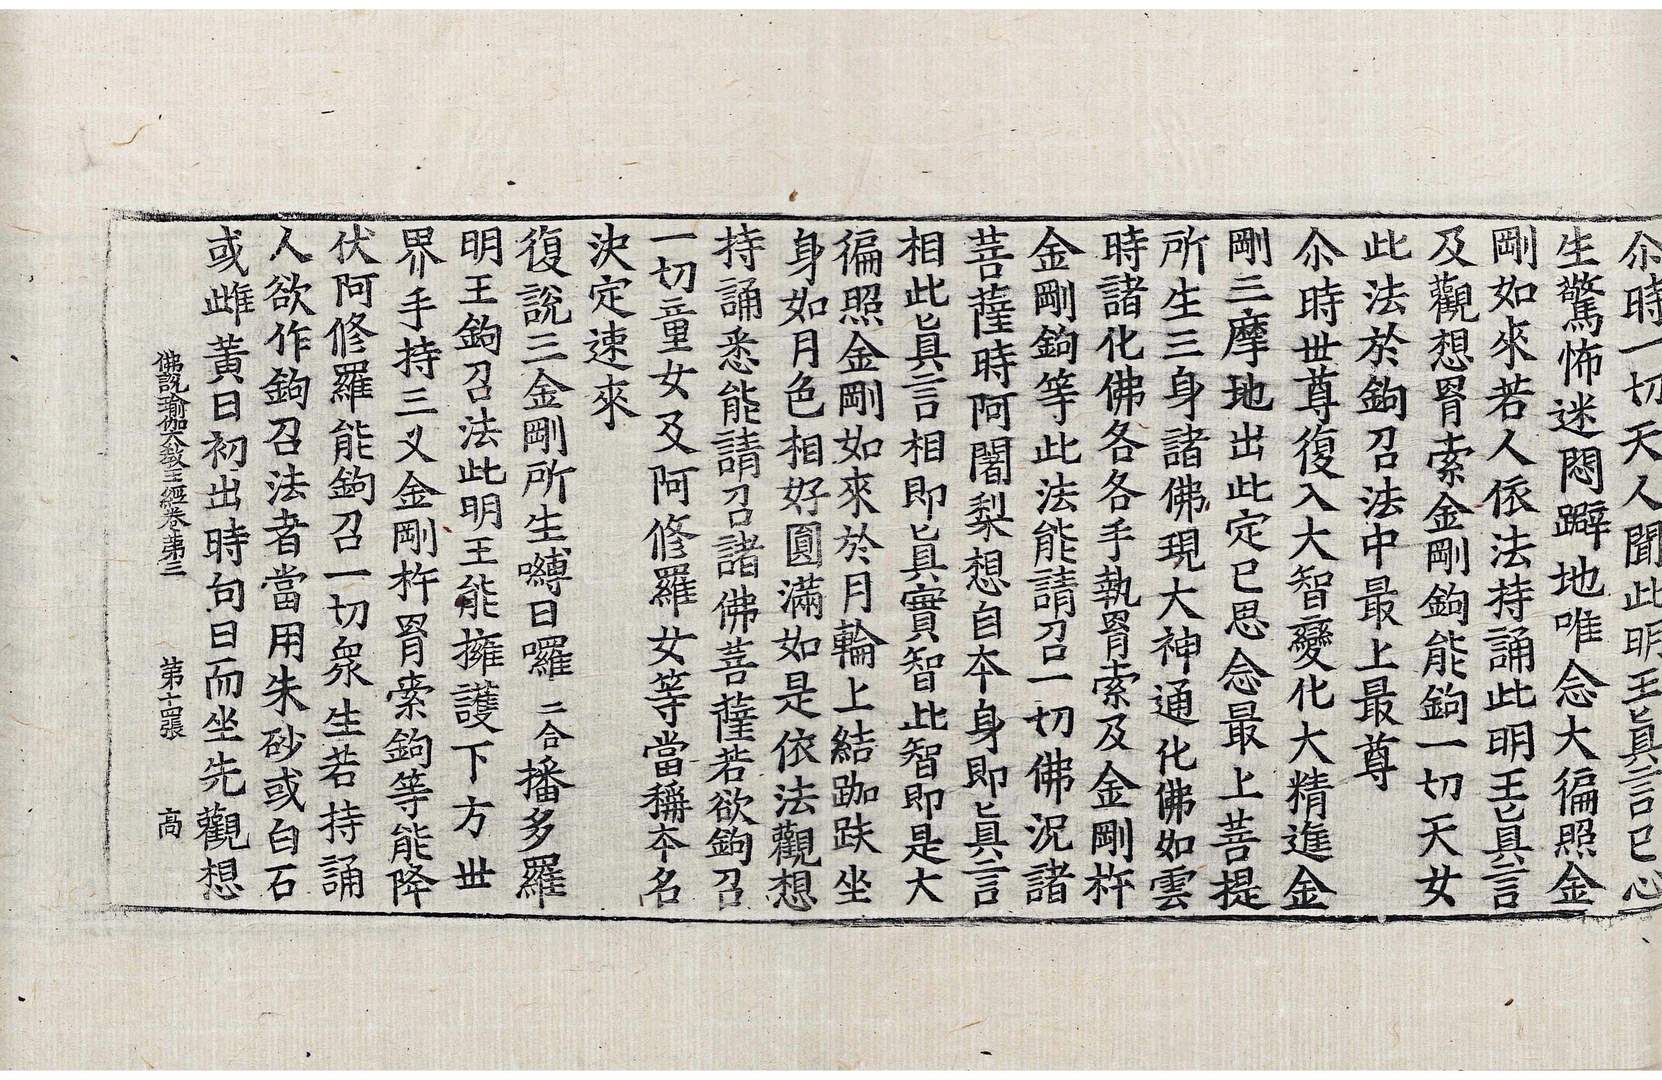 尒時一切天人聞此明王真言已心
生驚怖迷悶躃地唯念大徧照金
剛如來若人依法持誦此明王真言
及觀想罥索金剛鉤能鉤一切天女
此法於鉤召法中最上最尊
尒時世尊復入大智變化大精進金
剛三摩地出此定已思念最上菩提
所生三身諸佛現大神通化佛如雲
時諸化佛各各手執罥索及金剛杵
金剛鉤等此法能請召一切佛況諸
菩薩時阿闍梨想自本身即真言
相此真言相即真實智此智即是大
徧照金剛如來於月輪上結跏趺坐
身如月色相好圓滿如是依法觀想
持誦悉能請召諸佛菩薩若欲鉤召
一切童女及阿修羅女等當稱本名
決定速來
復說三金剛所生嚩日囉二合播多羅
明王鉤召法此明王能擁護下方世
界手持三叉金剛杵罥索鉤等能降
伏阿修羅能鉤召一切衆生若持誦
人欲作鉤召法者當用朱砂或白石
或雌黃日初出時句日而坐先觀想
佛說瑜伽大教王經卷第三 第十四張 高